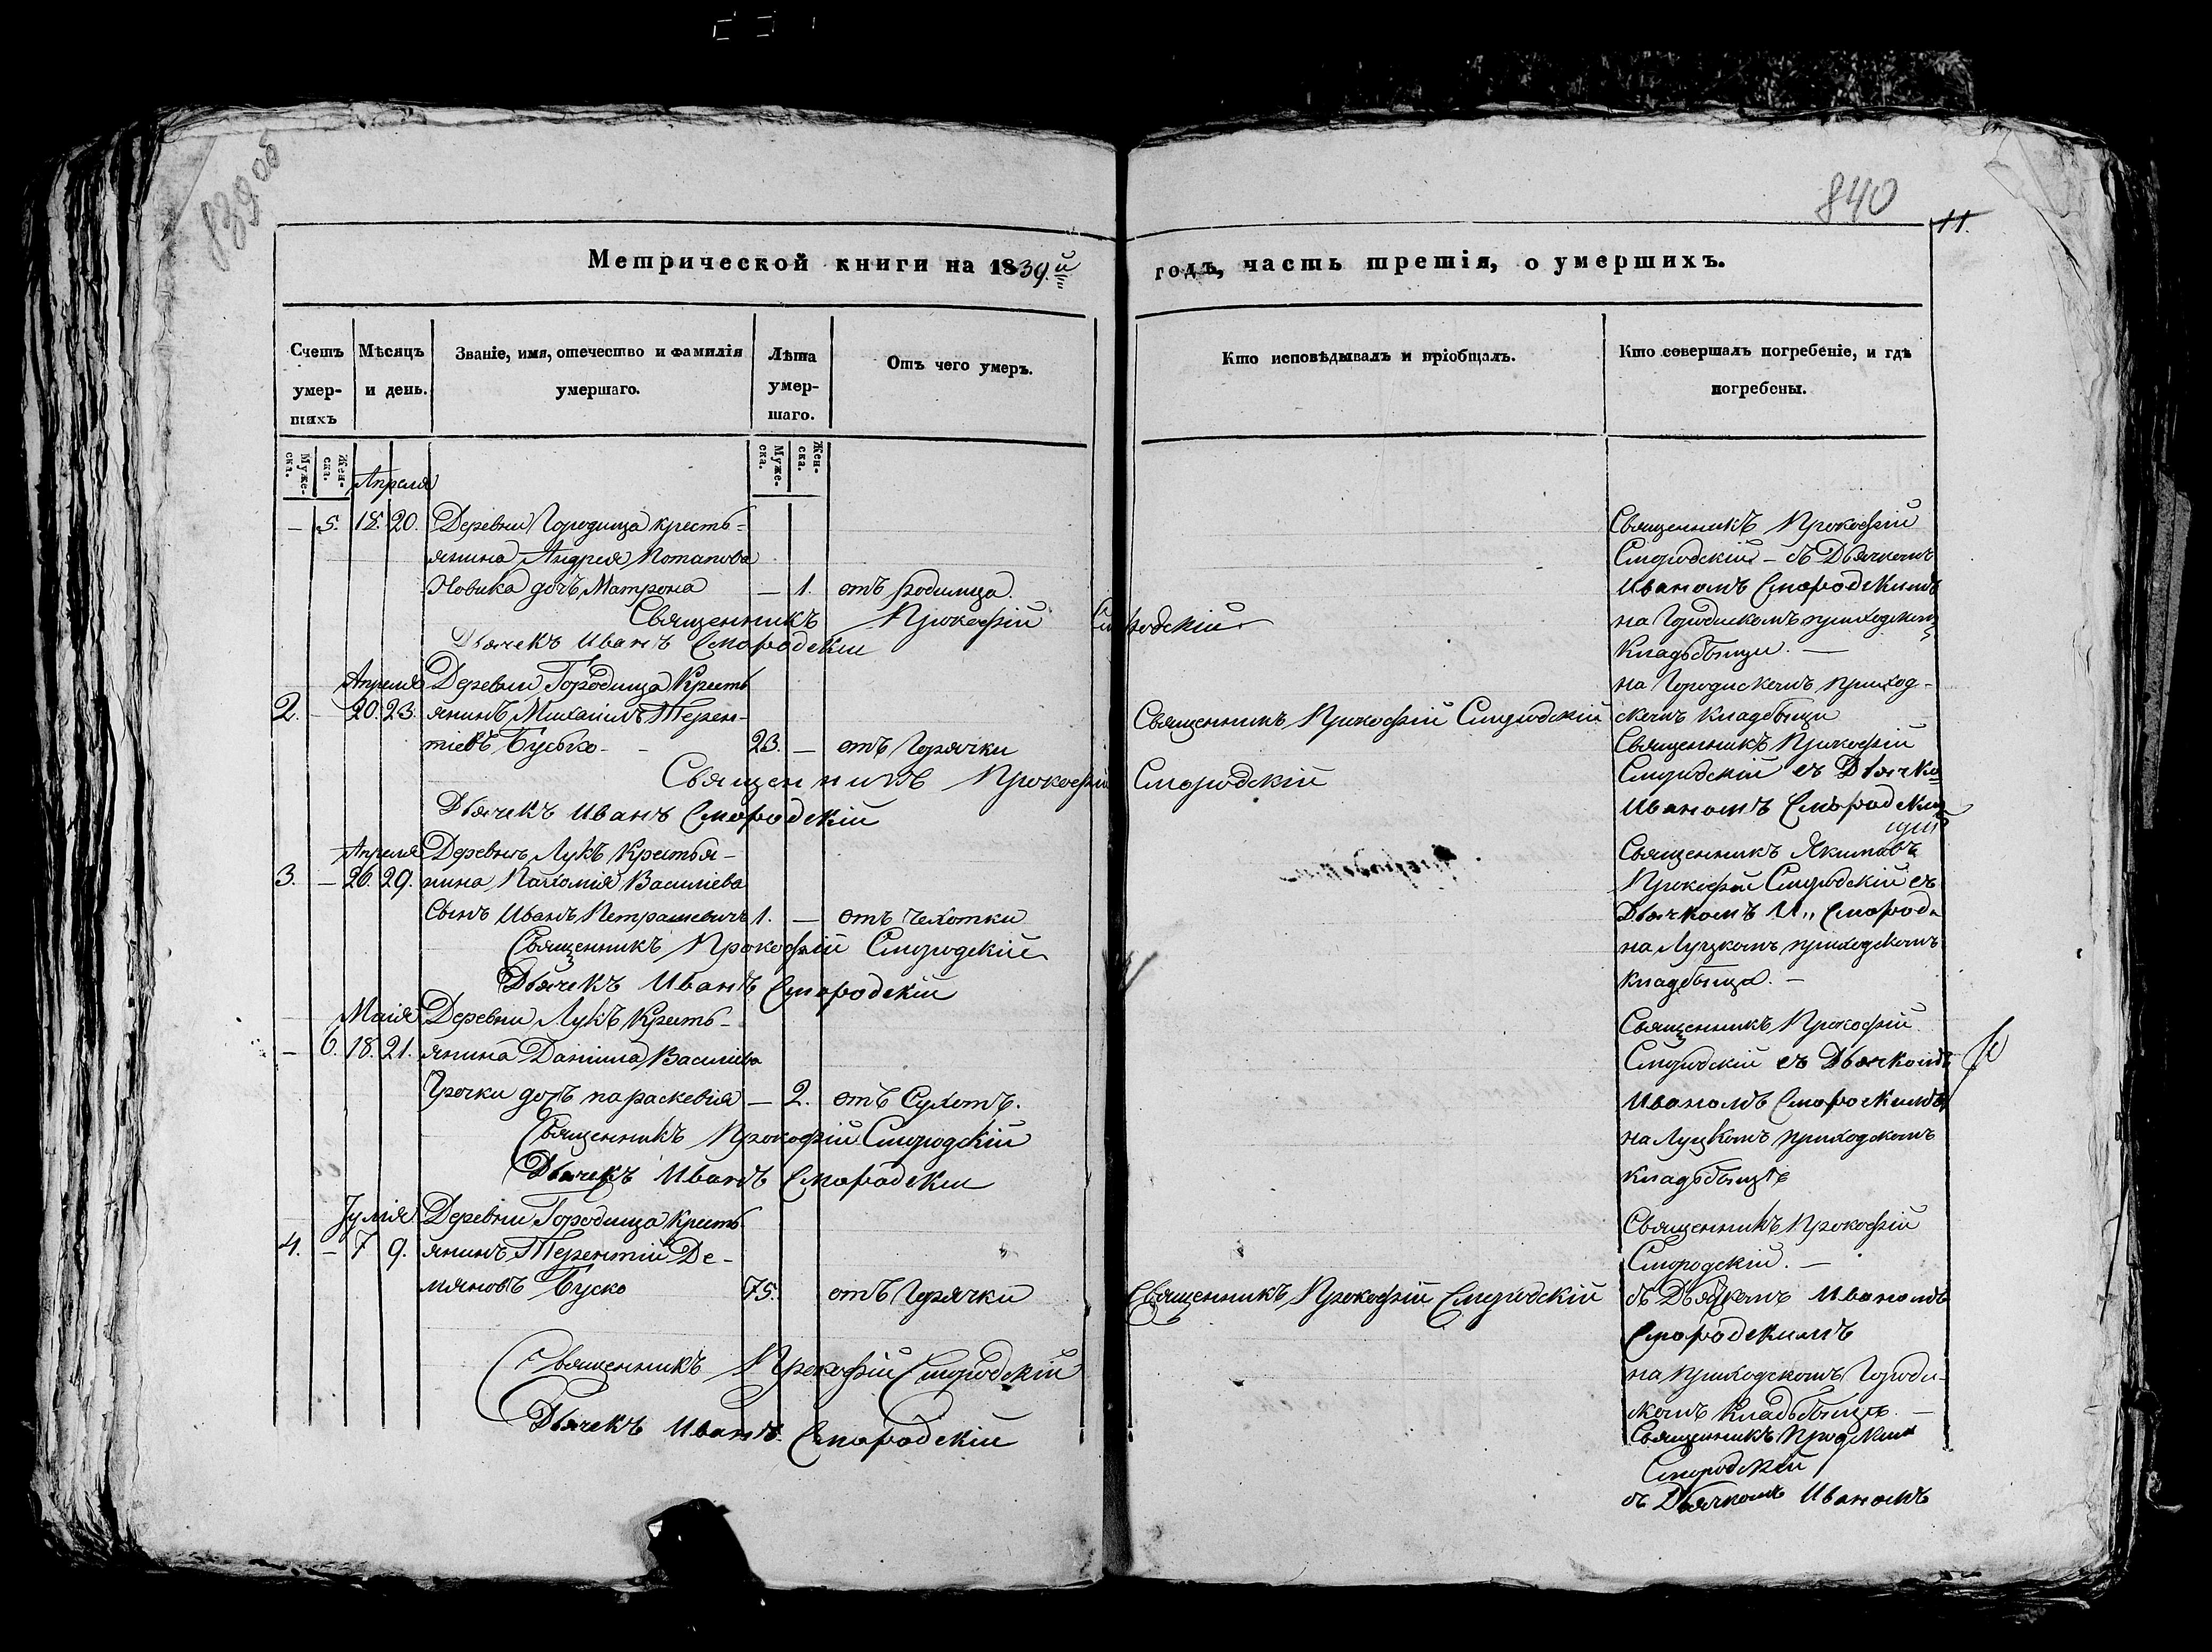 839 об
840
11.
Метрической книги на 1839.й годъ, часть третія, о умершихъ.
Счетъ умер-шихъ
Мѣсяцъ и день.
Званіе, имя, отечество и фамилія умершаго.
Лѣта умер-шаго.
Отъ чего умеръ.
Кто исповѣдывалъ и пріобщалъ.
Кто совершалъ погребеніе, и гдѣ погребены.
Муже-ска.
Жен-ска.
Муже-ска.
Жен-ска.
Апреля
— 5. 18. 20. Деревни Городища кресть-
янина Андрея Потапова
Новика дочь Матрона — 1. отъ родимца.
Священникъ Прокофій Смородскій
Дьячекъ Иванъ Смородскій
Священникъ Прокофій
Смородскій — съ Дьячкомъ
Иваномъ Смородскимъ
на Городискомъ приходскомъ
Кладьбищи. —
Апреля Деревни Городища Кресть
2. — 20. 23. янинъ Михаилъ Терен-
тіевъ Бусько — 23. — отъ Горячки
Священникъ Прокофій Смородскій
Священникъ Прокофій Смородскій
Дьячекъ Иванъ Смородскій
на Городискомъ приход-
скомъ кладбищи
Священникъ Прокофій
Смородскій съ Дьячко
Иваномъ Смородским
Апреля Деревнъ Лукъ Крестья-
3. — 26. 29. нина Пахомія Василіева
Сынъ Иванъ Петрашевичъ 1. — отъ чехотки
Священникъ Прокофій Смородскій
Дьячекъ Иванъ Смородскій
Священникъ
Прокофій Смородскій съ
Дьячкомъ И,, Смород.
на Луцкомъ приходскомъ
кладбища. —
Маія Деревни Лукъ Кресть-
— 6. 18. 21. янина Даніила Василіева
Грочки дочь параскевія — 2. отъ Сухотъ.
Священникъ Прокофій Смородскій
Дьячекъ Иванъ Смородскій
Священникъ Прокофій
Смородскій съ Дьячкомъ
Иваномъ Смороскимъ
на Луцкомъ приходскомъ
кладьбищѣ
Іулія Деревни Городища Кресть
4. — 7 9. янинъ Терентій Де-
мяновъ Буско 75. отъ Горячки
Священникъ Прокофій Смородскій
Священникъ Прокофій Смородскій
Дьячекъ Иванъ Смородскій
Священникъ Прокофій
Смородскій. —
съ Дьячкомъ Иваномъ
Смородскимъ
на приходскомъ Городи-
скомъ кладьбищъ. —
Священникъ
Смородскій
съ Дьячкомъ Иваномъ